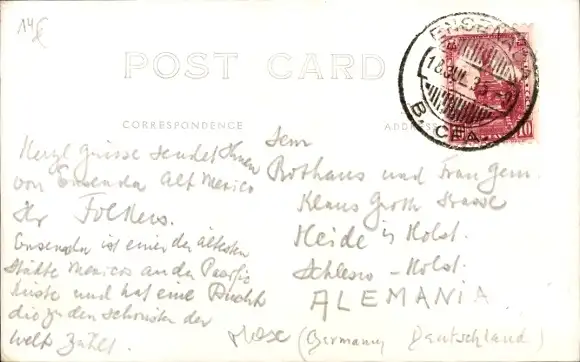 14€
POST CARD
CORRESPONDENCE
ADDRESS
ENSENADA
B. CFA.
10
Herzl Grüsse sendet Ihnen
von Ensenda Alt Mexico
Ihr Folkers.
Ensenada ist einer der ältesten
Städte Mexicos an der Pacific
küste und hat eine Bucht
die zu den schönsten der
Welt zählt.
Rothaus und Frau Gem.
Klaus Groth Strasse
Heide in Holst.
Schlesw-Holst.
ALEMANIA
(Germany Deutschland)